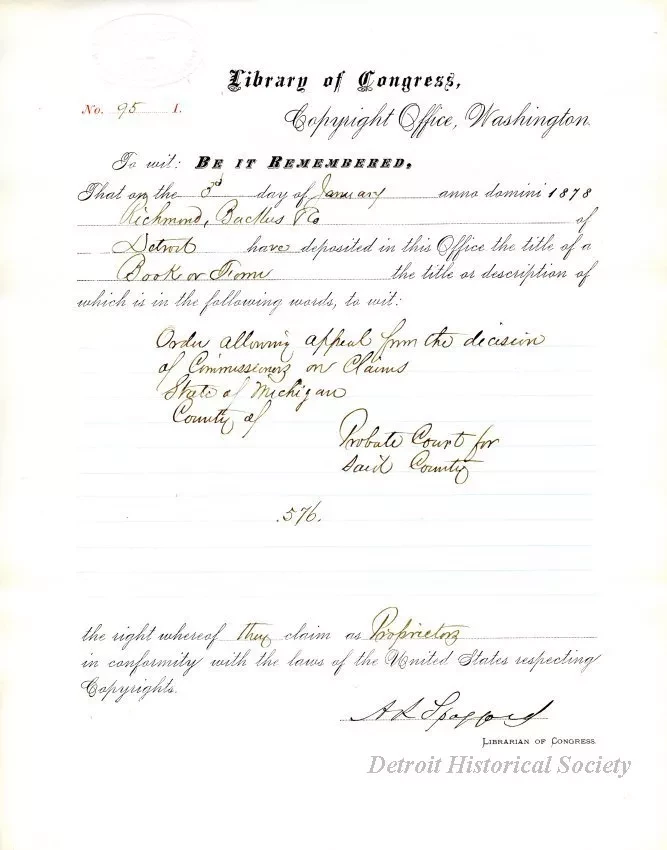 Library of Congress,
No. 95 I.
Copyright Office, Washington.
To wit: BE IT REMEMBERED,
That on the 3rd day of January anno domini 1878
Richmond, Backus & Co of
Detroit have deposited in this Office the title of a
Book or Form the title or description of
which is in the following words, to wit:
Order allowing appeal from the decision
of Commissioners on Claims
State of Michigan
County of
Probate Court for
said County
.576.
the right whereof they claim as Proprietors
in conformity with the laws of the United States respecting
Copyrights.
A R Spofford
LIBRARIAN OF CONGRESS.
Detroit Historical Society